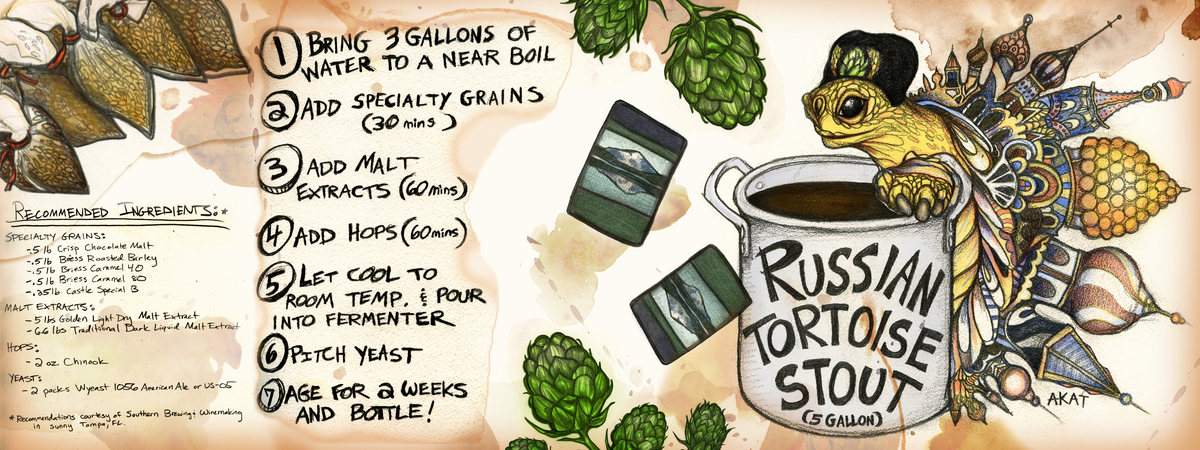 RECOMMENDED INGREDIENTS:*
SPECIALTY GRAINS:
-.5 lb Crisp Chocolate Malt
-.5 lb Briess Roasted Barley
-.5 lb Briess Caramel 40
-.5 lb Briess Caramel 80
-.25 lb. Castle Special B
MALT EXTRACTS:
- 5 lbs Golden Light Dry Malt Extract
- 6.6 lbs Traditional Dark Liquid Malt Extract
HOPS:
- 2 oz Chinook
YEAST:
- 2 packs Wyeast 1056 American Ale or US-05
*Recommendations courtesy of Southern Brewing & Winemaking
in sunny Tampa, FL.
1 BRING 3 GALLONS OF
WATER TO A NEAR BOIL
2 ADD SPECIALTY GRAINS
(30 mins)
3 ADD MALT
EXTRACTS (60 mins)
4 ADD HOPS (60 mins)
5 LET COOL TO
ROOM TEMP. & POUR
INTO FERMENTER
6 PITCH YEAST
7 AGE FOR 2 WEEKS
AND BOTTLE!
RUSSIAN
TORTOISE
STOUT
(5 GALLON)
AKAT